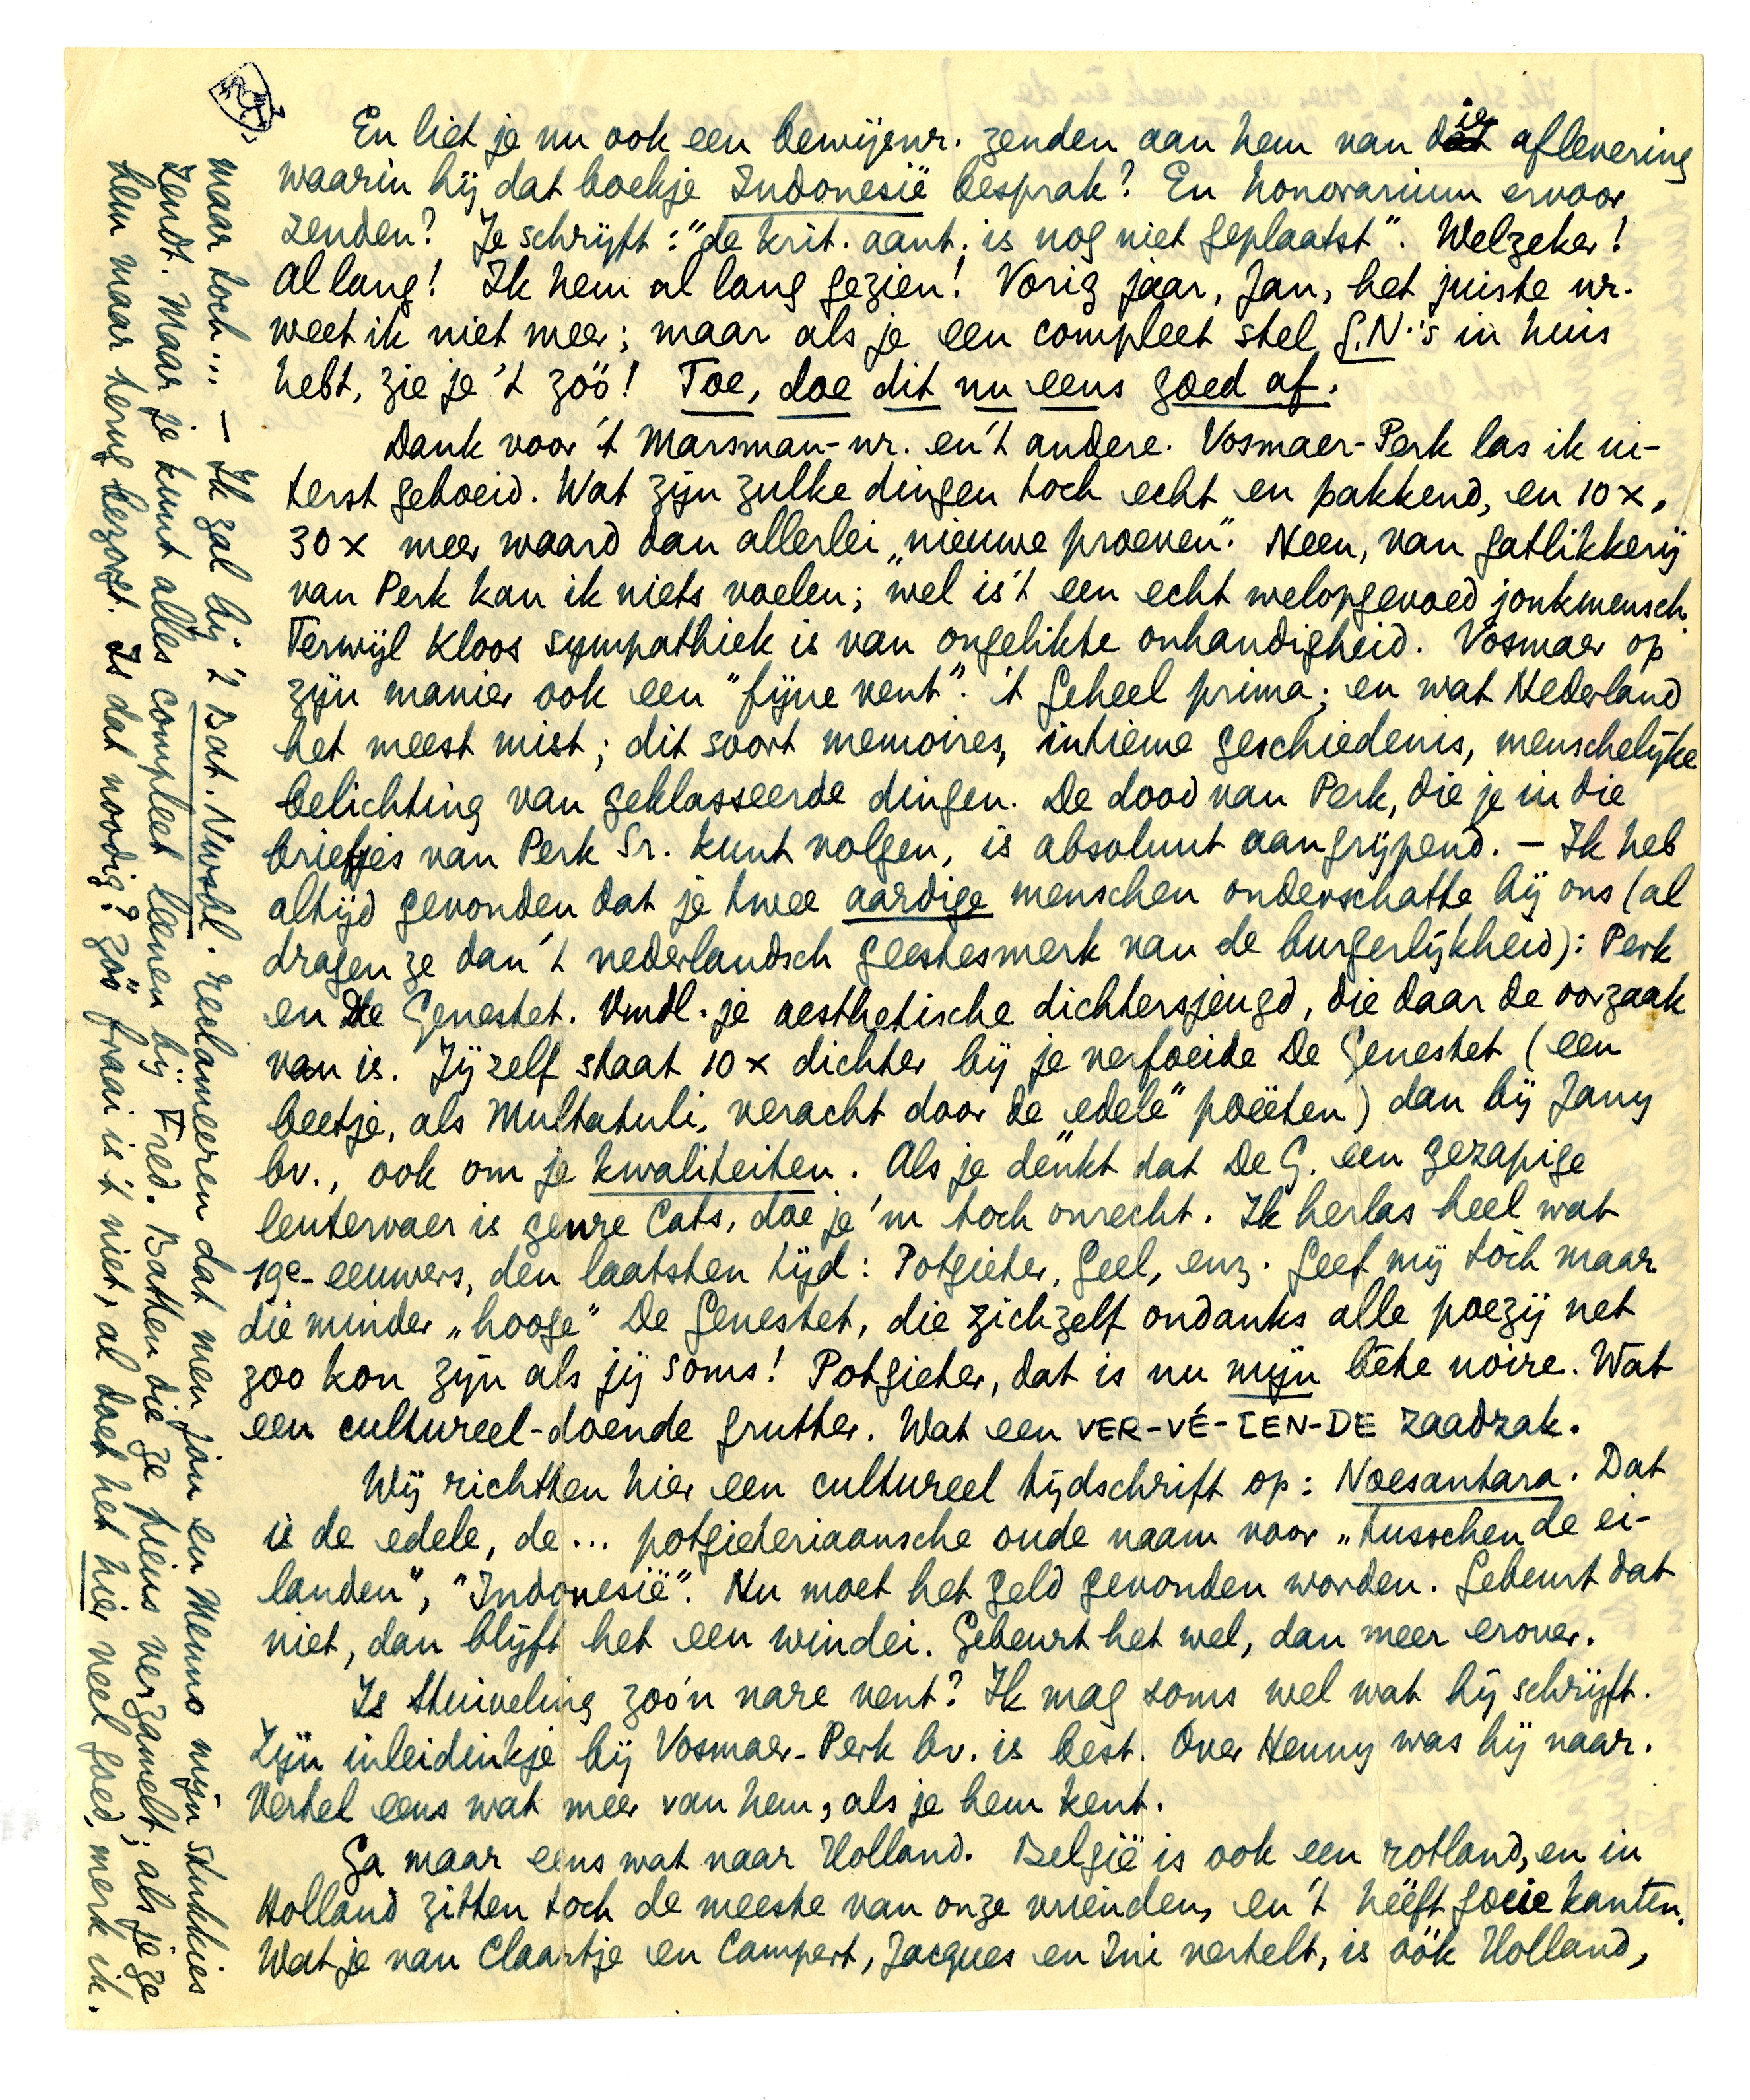 En liet je nu ook een bewijsnr. zenden aan hem van die aflevering
waarin hij dat boekje Indonesië besprak? En honorarium ervoor
zenden? Je schrijft: "de krit. aant. is nog niet geplaatst". Welzeker!
Al lang! Ik hem al lang gezien! Vorig jaar, Jan, het juiste nr.
weet ik niet meer; maar als je een compleet stel G.N.'s in huis
hebt, zie je 't zóó! Toe, doe dit nu eens goed af.
Dank voor 't Marsman-nr. en 't andere. Vosmaer-Perk las ik ui-
terst geboeid. Wat zijn zulke dingen toch echt en pakkend, en 10 x,
30 x meer waard dan allerlei „nieuwe proeven". Neen, van gatlikkerij
van Perk kan ik niets voelen; wel is 't een echt welopgevoed jonkmensch.
Terwijl Kloos sympathiek is van ongelikte onhandigheid. Vosmaer op
zijn manier ook een "fijne vent". 't Geheel prima; en wat Nederland
het meest mist; dit soort memoires, intieme geschiedenis, menschelijke
belichting van geklasseerde dingen. De dood van Perk, die je in die
briefjes van Perk Sr. kunt volgen, is absoluut aangrijpend. – Ik heb
altijd gevonden dat je twee aardige menschen onderschatte bij ons (al
dragen ze dan 't nederlandsch geestesmerk van de burgerlijkheid): Perk
en De Genestet. Vmdl. je aesthetische dichtersjeugd, die daar de oorzaak
van is. Jijzelf staat 10 x dichter bij je verfoeide De Genestet (een
beetje, als Multatuli, veracht door de „edele" poëeten) dan bij Jany
bv., ook om je kwaliteiten. Als je denkt dat De G. een gezapige
leutervaer is genre Cats, doe je 'm toch onrecht. Ik herlas heel wat
19e-eeuwers, den laatsten tijd: Potgieter, Geel, enz. Geef mij tòch maar
die minder „hooge" De Genestet, die zichzelf ondanks alle poezij net
zoo kon zijn als jij soms! Potgieter, dat is nu mijn bête noire. Wat
een cultureel-doende grutter. Wat een VER-VÉ-LEN-DE zaadzak.
Wij richtten hier een cultureel tijdschrift op: Noesantara. Dat
is de edele, de... potgieteriaansche oude naam voor „tusschen de ei-
landen", "Indonesië". Nu moet het geld gevonden worden. Gebeurt dat
niet, dan blijft het een windei. Gebeurt het wel, dan meer erover.
Is Stuiveling zoo'n nare vent? Ik mag soms wel wat hij schrijft.
Zijn inleidinkje bij Vosmaer-Perk bv. is best. Over Henny was hij naar.
Vertel eens wat meer van hem, als je hem kent.
Ga maar eens wat naar Holland. België is ook een rotland, en in
Holland zitten toch de meeste van onze vrienden, en 't hééft goeie kanten.
Wat je van Claartje en Campert, Jacques en Ini vertelt, is óók Holland,
maar toch... – Ik zal bij 't Bat. Nwsbl. reclameeren dat men jou en Menno mijn stukkies
zendt. Maar je kunt alles compleet leenen bij Fred. Batten die ze piens verzamelt; als je ze
hem maar terug bezorgt. Is dat noodig? Zóó fraai is 't niet, al doet het hier veel goed, merk ik.